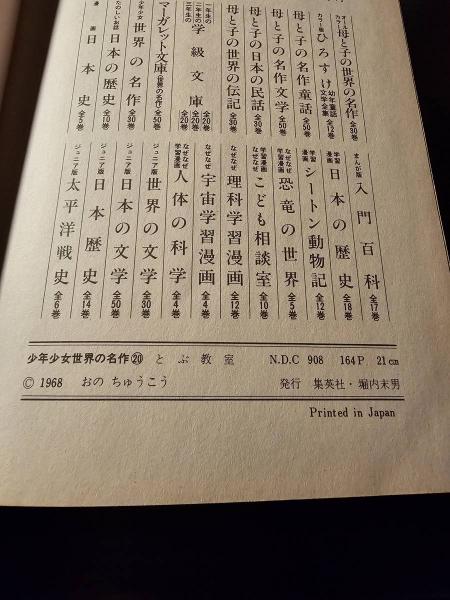 オールカラー 母と子の世界の名作 全30巻
カラー版 ひろすけ幼年童話文学全集 全12巻
母と子の名作童話 全50巻
母と子の名作文学 全30巻
母と子の日本の民話 全30巻
母と子の世界の伝記 全30巻
一年生の 二年生の 三年生の 学級文庫 全20巻 全20巻 全20巻
マーガレット文庫(世界の名作) 全50巻
少年少女 世界の名作 全30巻
たのしいお話 日本の歴史 全10巻
漫画 日本史 全5巻
まんが版 入門百科 全17巻
学習漫画 日本の歴史 全18巻
学習漫画 シートン動物記 全12巻
なぜなぜ学習漫画 恐竜の世界 全5巻
学習漫画なぜなぜ こども相談室 全10巻
なぜなぜ 理科学習漫画 全12巻
なぜなぜ 宇宙学習漫画 全4巻
なぜなぜ学習漫画 人体の科学 全4巻
ジュニア版 世界の文学 全30巻
ジュニア版 日本の文学 全50巻
ジュニア版 日本歴史 全14巻
ジュニア版 太平洋戦史 全6巻
少年少女世界の名作⑳ とぶ教室 N.D.C 908 164P 21cm
© 1968 おの ちゅうこう 発行 集英社・堀内末男
Printed in Japan